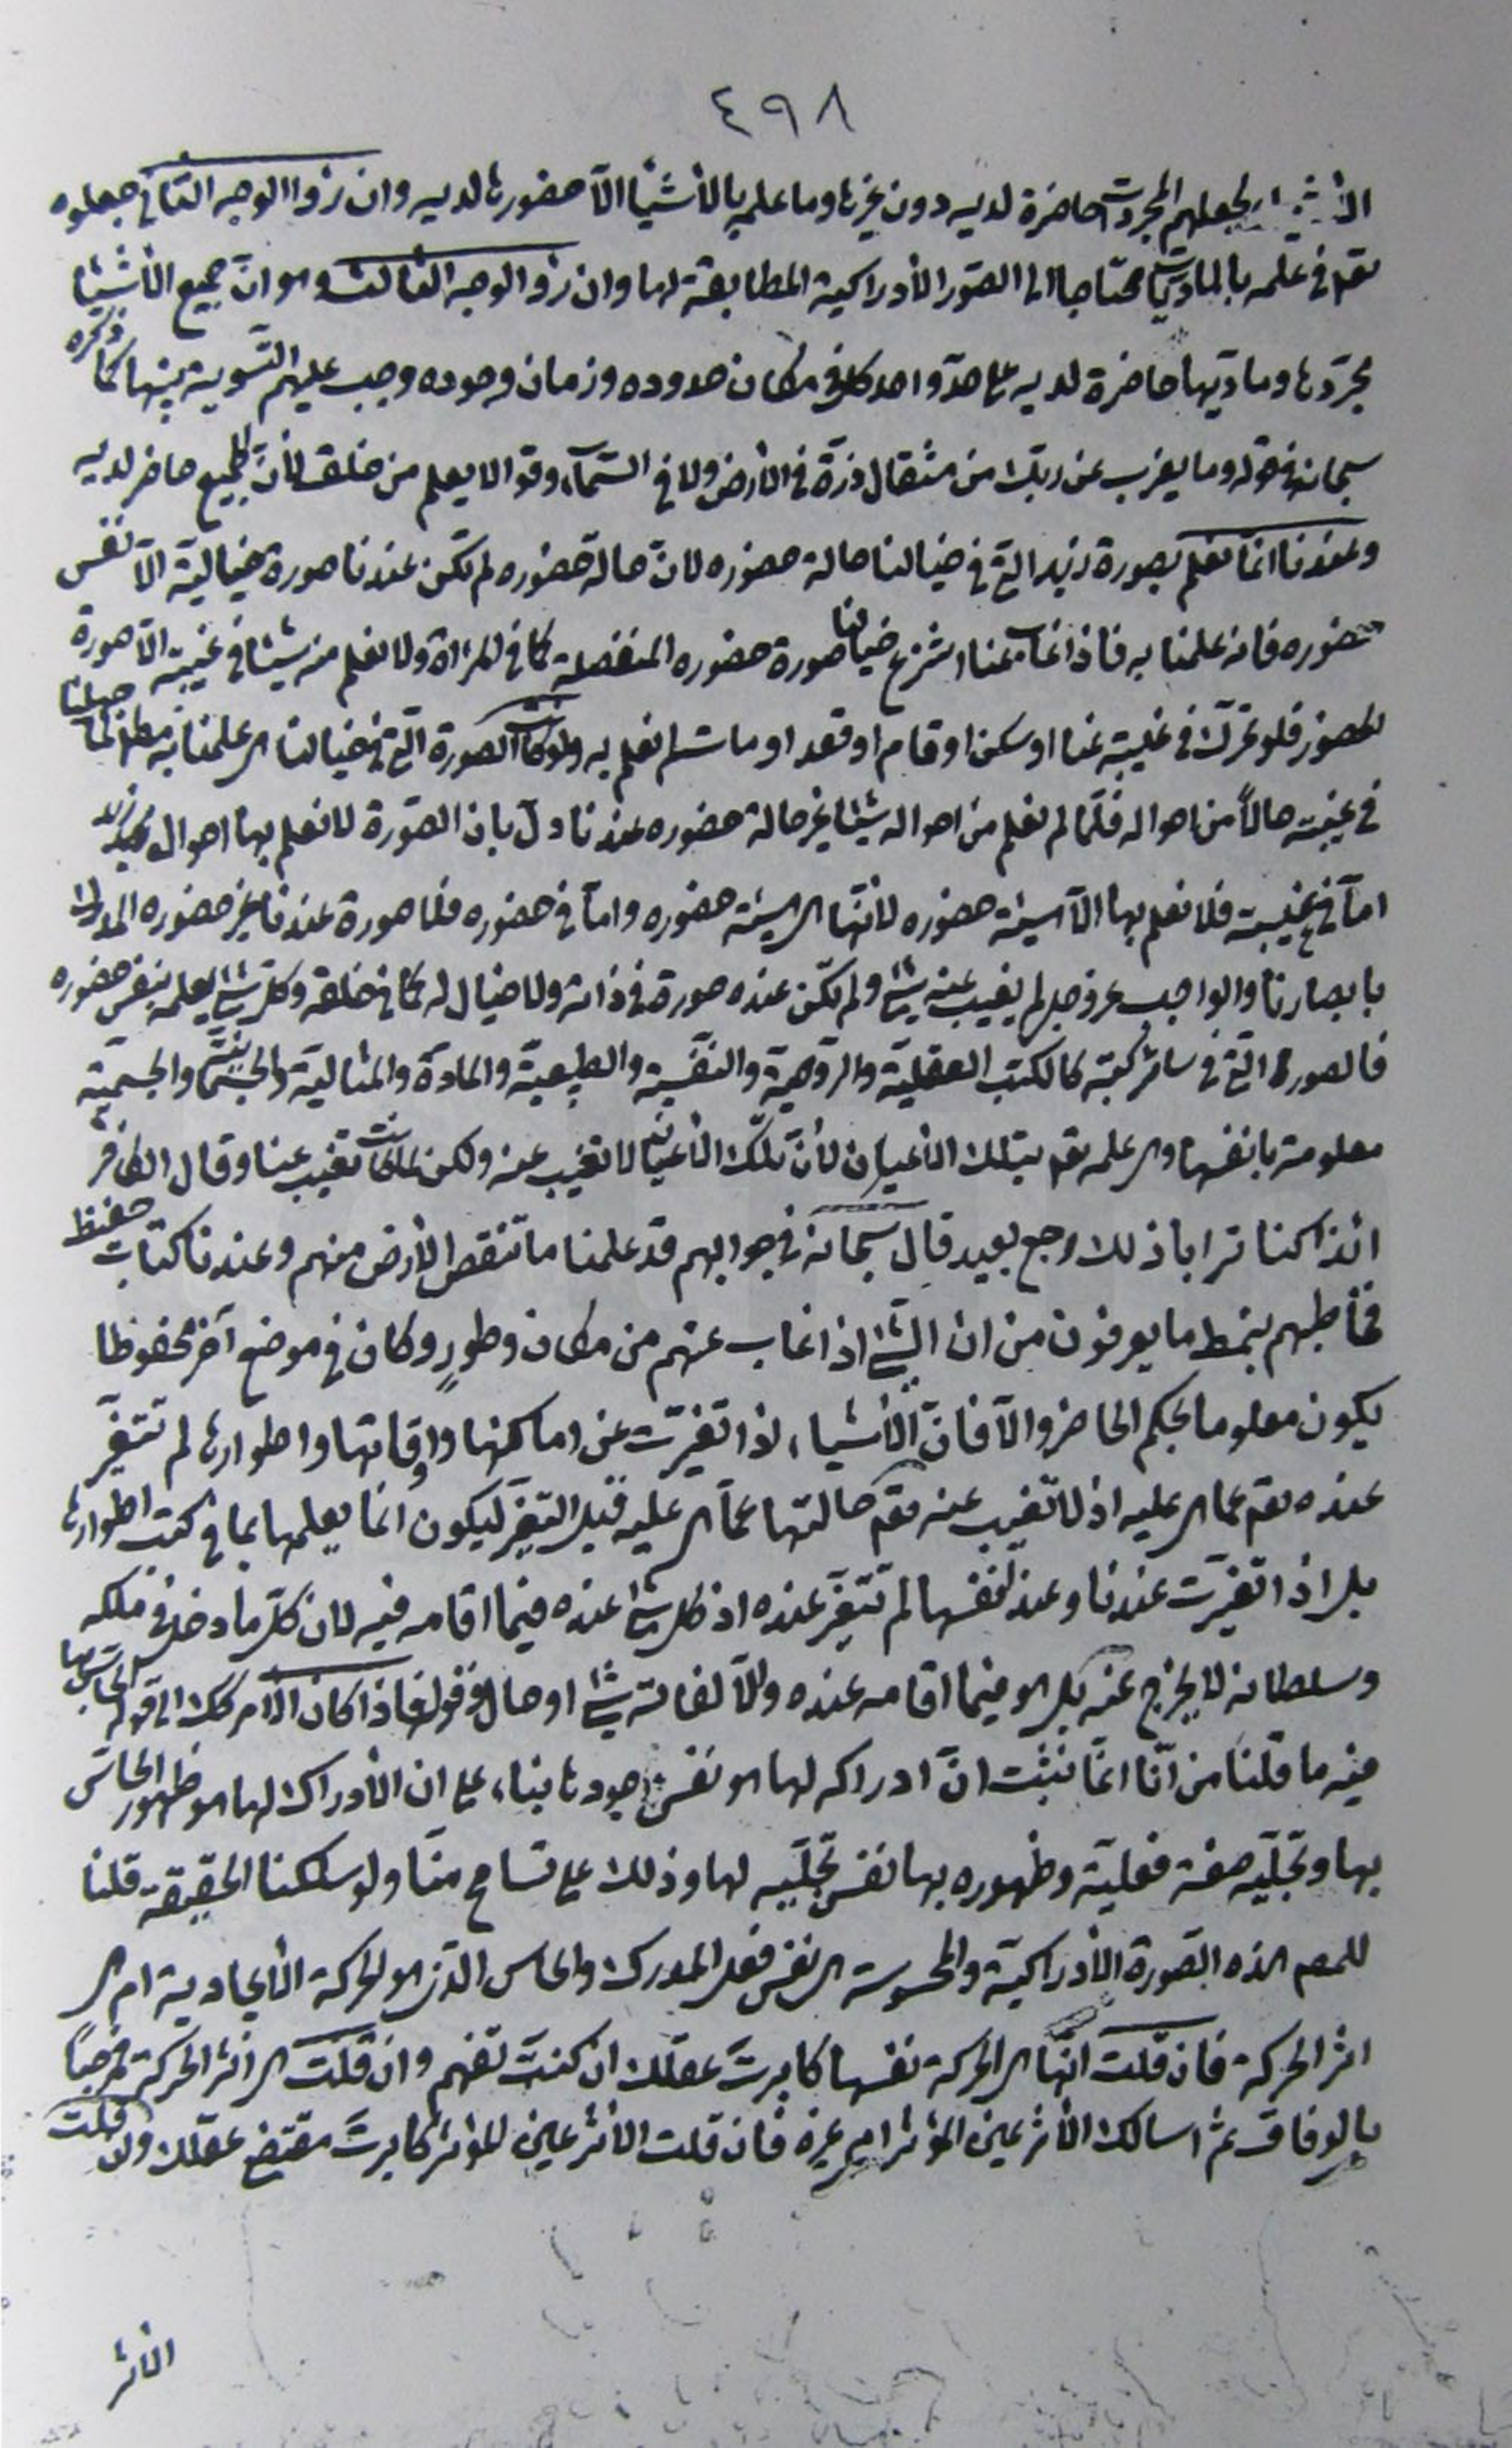 ٤٩٨
لجعلهم المجردات حاضرة لديه دون غيرها وما علمه بالأشياء الّا حضورها لديه وان رزوا الوجه الثانى جعلوه
تعم فى علمه بالماديات محتاجا الى الصور الأدراكية المطابقة لها وان رزوا الوجه الثالث وهو انّ جميع الأشياء
مجرّدها وماديها حاضرة لديه على حدّ واحد كل فى مكان حدوده وزمان وجوده وجب عليهم التسوية بينها كما ذكره
سبحانه فى قوله وما يعزب عن ربّك من مثقال ذرّة فى الأرض ولا فى السّمآء وقوله الا يعلم من خلق لأنّ الجميع حاضر لديه
وعندنا انّما نعلم بصورة زيد الّتى فى خيالنا حالة حضوره لانّ حالة حضوره لم تكن عندنا صورة خياليّة الّا نفس
حضوره فانه علمنا به فاذا غاب عنا انتزع خيالنا صورة حضوره المنفصلة كما فى المرءاة ولا نعلم منه شيئا فى غيبته الّا صورة
الحضور فلو تحرّك فى غيبته عنا او سكن او قام او قعد او مات لم نعلم به ولو كانت الصورة الّتى فى خيالنا هى علمنا به مطلقا لما جهلنا
فى غيبته حالاً من احواله فلمّا لم نعلم من احواله شيئا غير حالة حضوره عندنا دلّ بان الصّورة لا نعلم بها احوال زيد
امّا فى غيبته فلا نعلم بها الّا هيئة حضوره لأنّها هى هيئة حضوره وامّا فى حضوره فلا صورة عندنا غير حضوره المدرك
بابصارنا والواجب عز وجل لم يغيب عنه شئ ولم تكن عنده صورة فى ذاته ولا خيال له كما فى خلقه وكلّ شئ يعلمه بنفس حضوره
فالصورة الّتى فى سائر كتبه كالكتب العقليّة والرّوحيّة والنفسيّة والطبيعيّة والمادّة والمثاليّة والجسمانيّة والجسميّة
معلومة بانفسها وهى علمه تعم بتلك الأعيان لأنّ تلك الأعيان لا تغيب عنه ولكن لما كانت تغيب عنا وقال الكافر
ائذا كنا ترابا ذلك رجع بعيد قال سبحانه فى جوابهم قد علمنا ما تنقص الأرض منهم وعندنا كتاب حفيظ
فخاطبهم بنمط ما يعرفون من ان الشّئ اذا غاب عنهم من مكان وطورٍ وكان فى موضع آخر محفوظا
يكون معلوما بحكم الحاضر والّا فانّ الأشياء اذا تغيّرت عن اماكنها واوقاتها واطوارها لم تتغيّر
عنده تعم عما هى عليه اذ لا تغيب عنه تعم حالتها عمّا هى عليه قبل التّغيّر ليكون انما يعلمها بما فى كتب اطوارها
بل اذا تغيّرت عندنا وعند نفسها لم تتغيّر عنده اذ كل شئ عنده فيما اقامه فيه لان كلّ ما دخل فى ملكه
وسلطانه لا يخرج عنه بل هو فيما اقامه عنده والّا لفاته شئ او حال وقوله فاذا كان الأمر كك الى قوله الحاسّ بها
فيه ما قلنا من انّا انّما نثبت انّ ادراكه لها هو نفس وجودها بناء على ان الأدراك لها هو ظهور الحاسّ
بها وتجلّيه صفة فعليّة وظهوره بها نفس تجلّيه لها وذلك على تسامح منّا ولو سلكنا الحقيقة قلنا
للمصم هذه الصورة الأدراكيّة والمحسوسة هى نفس فعل المدرك والحاس الذى هو الحركة الأيجادية ام هى
اثر الحركة فان قلت انّها هى الحركة نفسها كابرتَ عقلك ان كنت تفهم وان قلت هى اثر الحركة فمرحبًا
بالوفاق ثم اسالك الأثر عين المؤثر ام غيره فان قلت الأثر عين المؤثر كابرتَ مقتضى عقلك وان قلت
الأثر